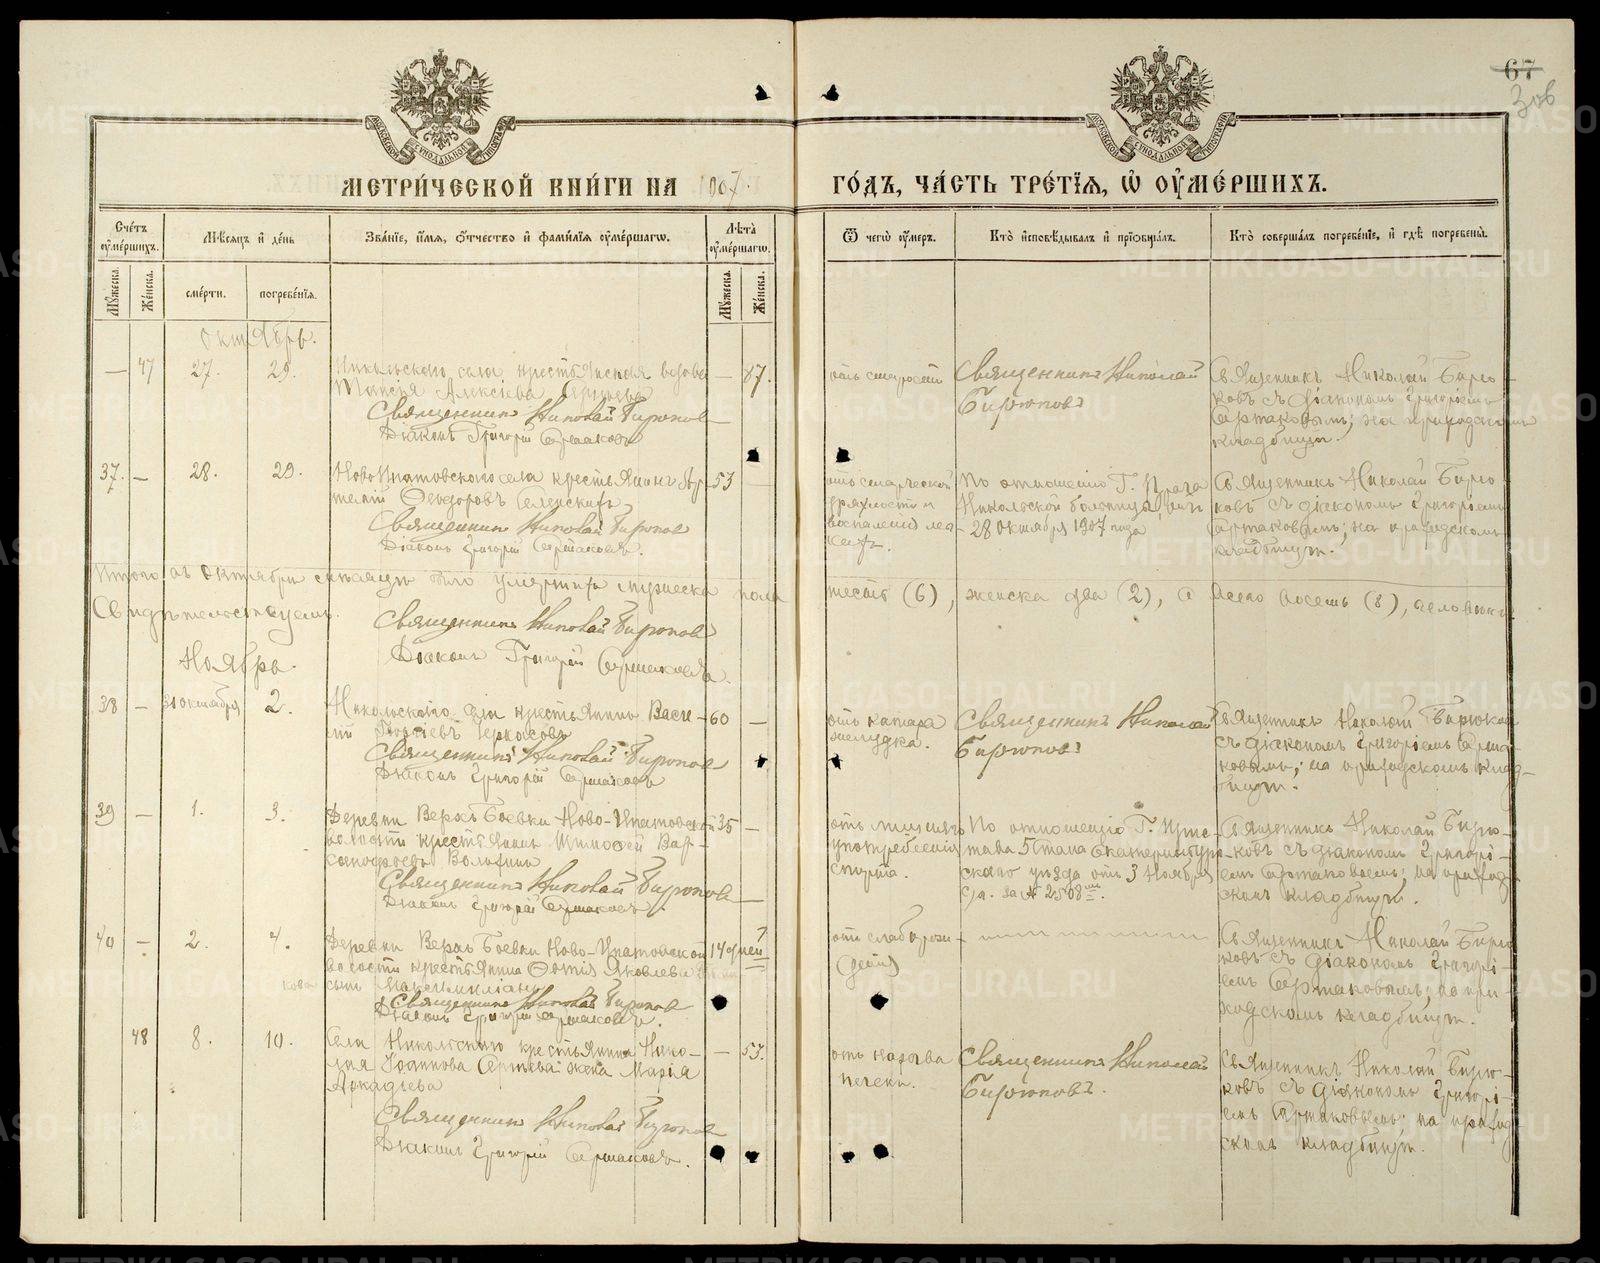 67
306
МЕТРИЧЕСКОЙ КНИГИ НА 1907.
ГОДЪ, ЧАСТЬ ТРЕТІЯ, Ѿ ОУМЕРШИХЪ.
Счетъ оумершихъ.
Мѣсяцъ и день
Званіе, имя, отчество и фамилія оумершагѡ.
Лѣта оумершагѡ.
Ѿ чегѡ оумеръ.
Кто исповѣдывалъ и пріобщалъ.
Кто совершалъ погребеніе, и гдѣ погребены.
Мужеска.
Женска.
смерти.
погребенія.
Мужеска.
Женска.
Октябрь.
— 47 27. 29.
Никольскаго села крестьянская вдова — 87.
Таисія Алексіева
Священникъ Николай Бирюковъ
Діаконъ Григорій
отъ старости
Священникъ Николай
Бирюковъ
Священникъ Николай Бирю-
ковъ съ діакономъ Григоріемъ
на приходскомъ
кладбищѣ.
37. — 28. 29.
Ново Ипатовскаго села крестьянинъ 53 —
Ѳеодоровъ
Священникъ Николай Бирюковъ
Діаконъ Григорій
отъ старческой
дряхлости и
воспаленія лег-
кихъ.
По отношенію Г. Врача
Никольской больницы отъ
28 октября 1907 года
Священникъ Николай Бирю-
ковъ съ діакономъ Григоріемъ
на приходскомъ
кладбищѣ.
Итого въ октябрѣ мѣсяцѣ было умершихъ мужеска пола
шесть (6), женска два (2), а всего восемь (8), человѣкъ.
Свидѣтельствуемъ.
Священникъ Николай Бирюковъ
Діаконъ Григорій
Ноябрь.
38 — 31 октября 2.
Никольскаго села крестьянинъ Васи- 60 —
лій
Священникъ Николай Бирюковъ
Діаконъ Григорій
отъ катара
желудка.
Священникъ Николай
Бирюковъ
Священникъ Николай Бирюковъ
съ діакономъ Григоріемъ
на приходскомъ клад-
бищѣ.
39 — 1. 3.
Деревни Верхъ Боевки Ново-Ипатовской 35 —
волости крестьянинъ Тимоѳей Вар-
Священникъ Николай Бирюковъ
Діаконъ Григорій
отъ лишняго
употребленія
спирта.
По отношенію Г. Прис-
тава 5 стана Екатеринбург-
скаго уѣзда отъ 3 Ноября
с/г. за № 2508
Священникъ Николай Бирю-
ковъ съ діакономъ Григорі-
емъ на приход-
скомъ кладбищѣ.
40 — 2. 4.
Деревни Верхъ Боевки Ново-Ипатовской 14 дней
волости крестьянина Фотія Яковлева
сынъ Максимиліанъ
Священникъ Николай Бирюковъ
Діаконъ Григорій
отъ слаборож-
денія
Священникъ Николай Бирю-
ковъ съ діакономъ Григорі-
емъ на при-
ходскомъ кладбищѣ.
48 8. 10.
Села Никольскаго крестьянина Нико- — 53.
лая Іоаннова жена Марія
Аркадіева
Священникъ Николай Бирюковъ
Діаконъ Григорій
отъ нарыва
печени.
Священникъ Николай
Бирюковъ.
Священникъ Николай Бирю-
ковъ съ діакономъ Григорі-
емъ на приход-
скомъ кладбищѣ.
METRIKI.GASO-URAL.RU